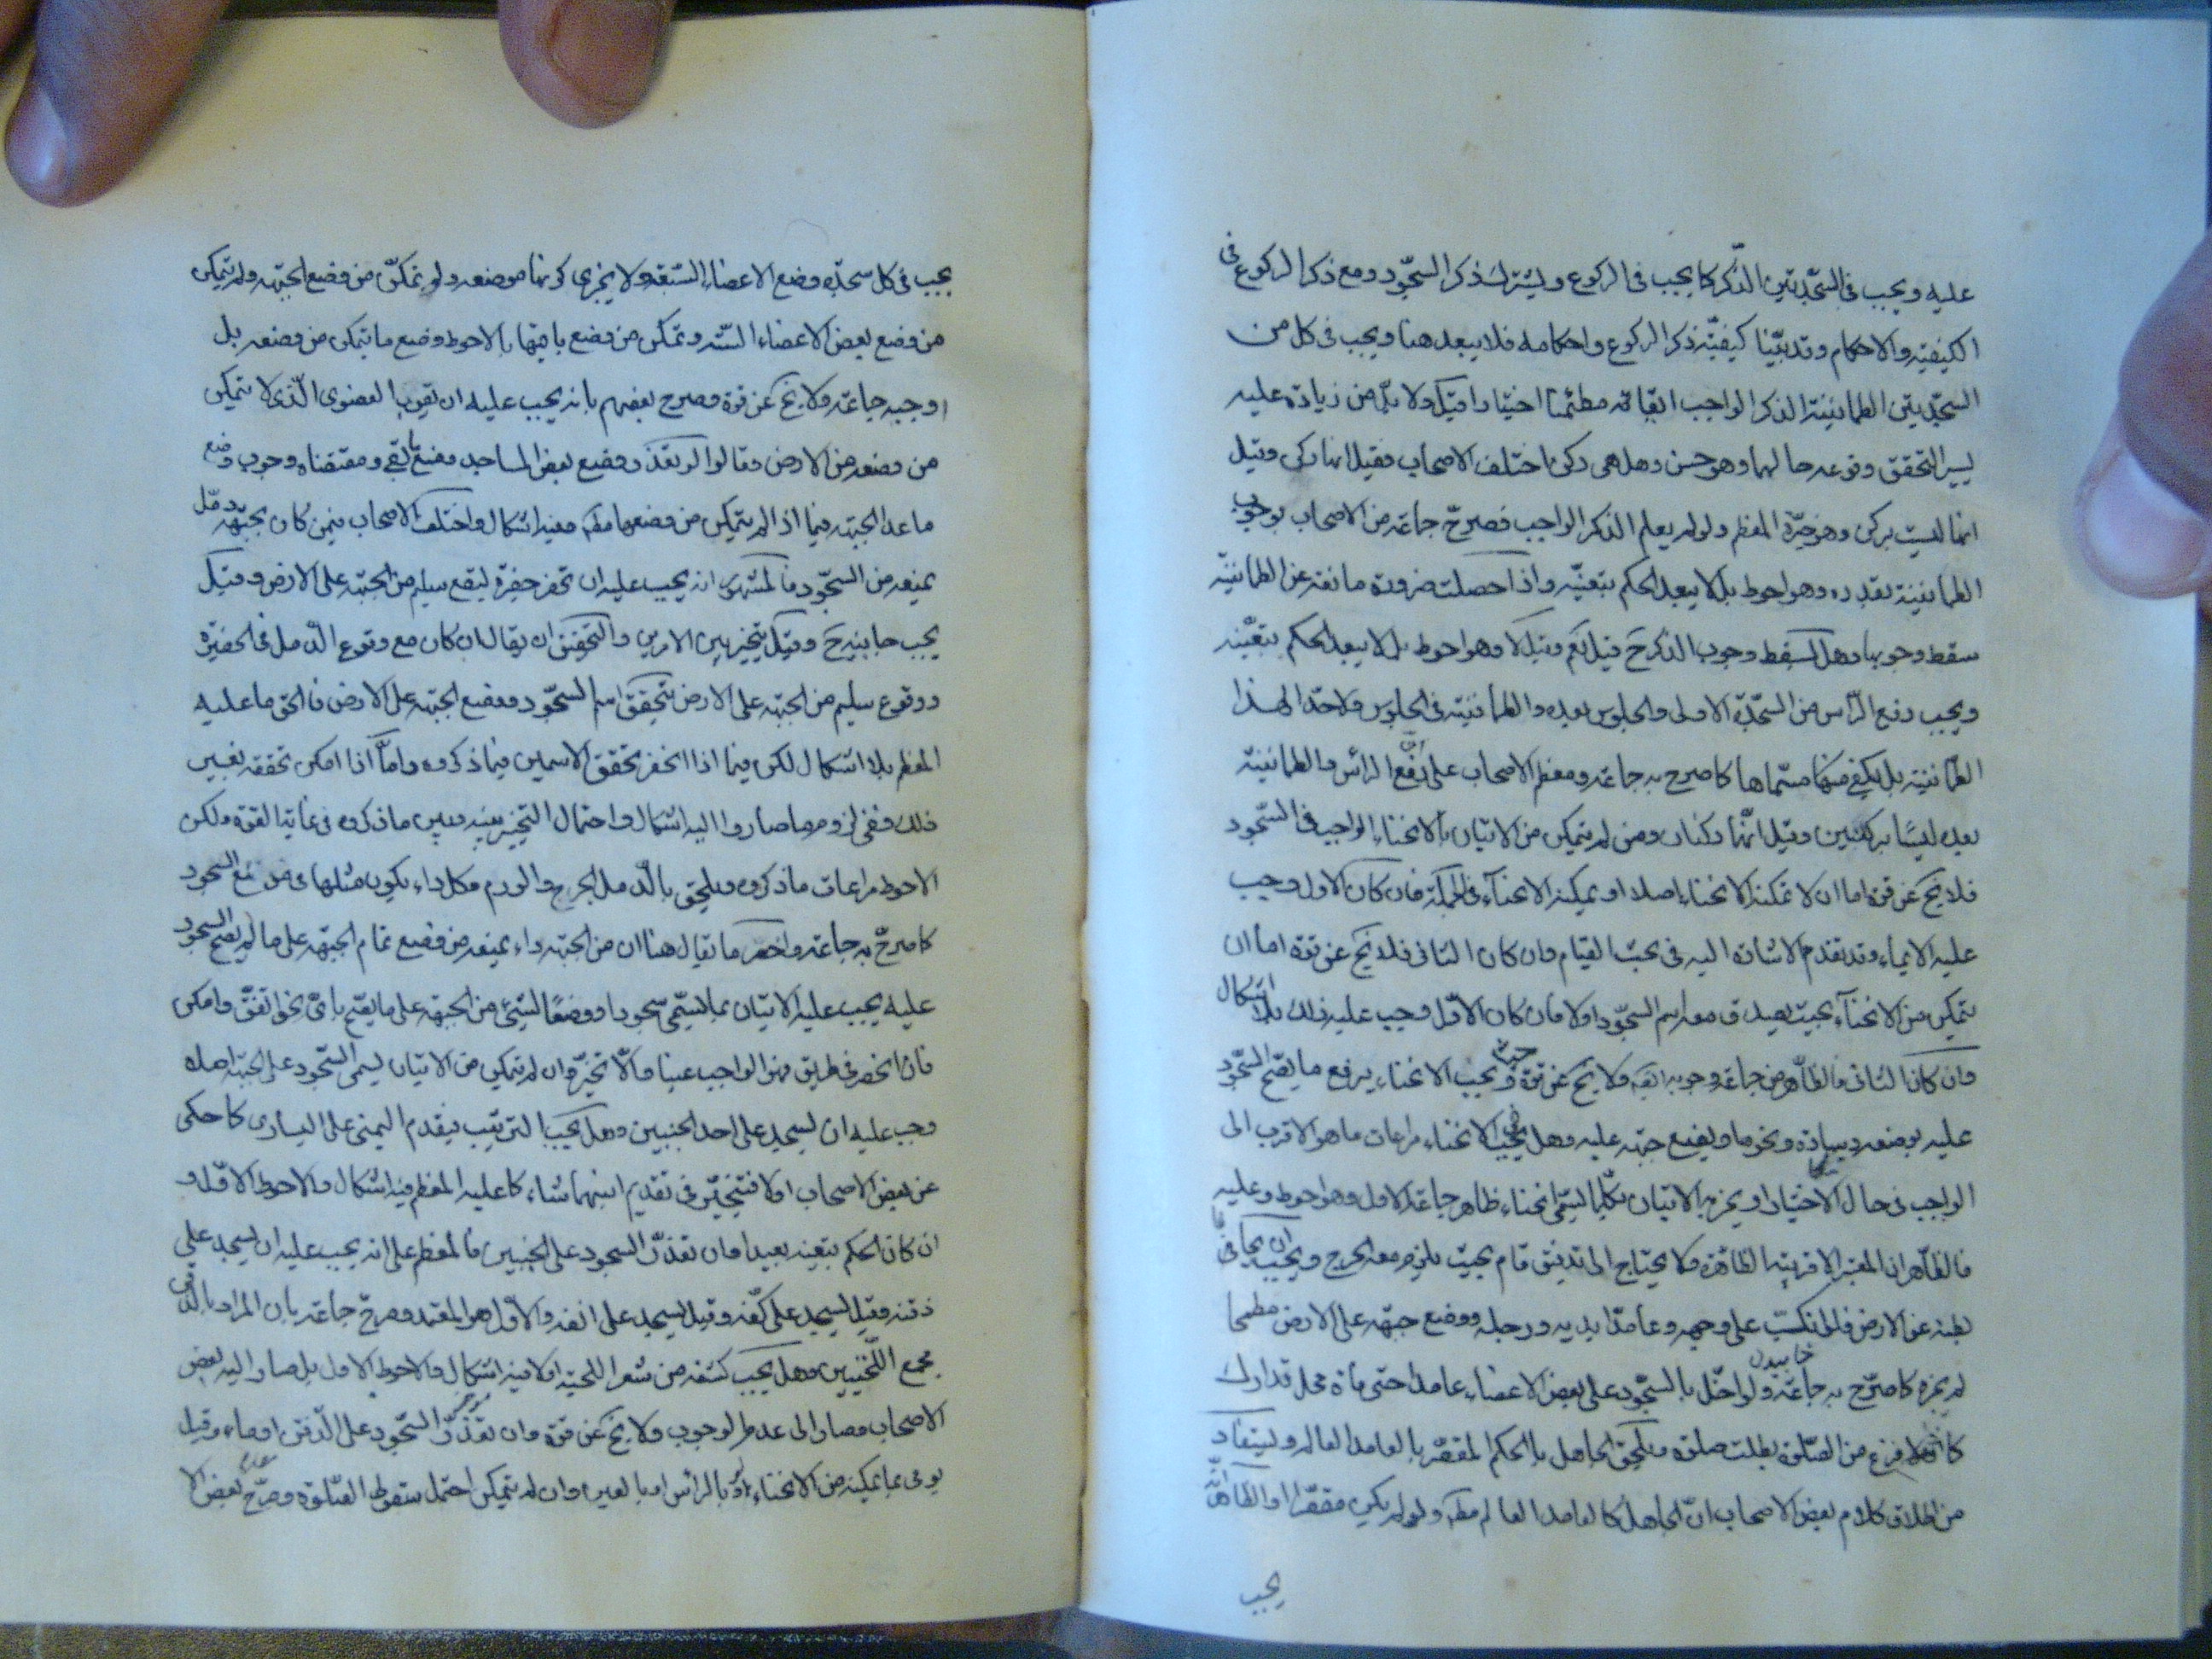 عليه ويجب فى السّجدتين الذّكر كما يجب فى الركوع ويشترك ذكر السجّود ومع ذكر الركوع فى
الكيفيّة والاحكام وقد بيّنا كيفيّة ذكر الركوع واحكامه فلا يبعد هنا ويجب فى كل من
السجّدتين الطمانينة الذكر الواجب مطمئنا اختيارا قيل ولا بدّ من زيادة عليه
يسير التحقق وقوعه حالهما وهو حسن وهل هى ركن اختلف الاصحاب فقيل انها ركن وقيل
انها ليست بركن وهو خيرة المعظم ولو لم يعلم الذكر الواجب فصرّح جماعة من الاصحاب بوجوب
الطمانينة بقدره وهو احوط بل لا يبعد الحكم بتعيّنه واذا حصلت ضرورة مانعة عن الطمانينة
سقط وجوبها وهل يسقط وجوب الذكر ح قيل نعم وقيل لا وهو احوط بل لا يبعد الحكم بتعيّنه
ويجب رفع الرّاس من السجّدة الاولى والجلوس بعده والطمأنينة فى الجلوس ولا حدّ لهذا
الطمأنينة بل يكفى منها مسمّاها كما صرح به جماعة ومعظم الاصحاب على ان رفع الراس والطمانينة
بعده ليسا بركنين وقيل انّهما ركنان ومن لم يتمكن من الاتيان بالانحناء الواجب فى السّجود
فلا يخ عن قوة اما ان لا تمكنه الانحناء اصلا او يمكنه الانحناء فى الجملة فان كان الاول وجب
عليه الايماء وقد تقدم الاشارة اليه فى بحث القيام وان كان الثانى فلا يخ عن قوة اما ان
يتمكن من الانحناء بحيث يصدق معه اسم السجّود اولا فان كان الاوّل وجب عليه ذلك بلا اشكال
وان كان الثانى فالظّاهر من جماعة وجوبه ايضه ولا يخ عن قوة ويجب الانحناء يرفع ما يصّح السّجود
عليه بوضعه وسادة ونحوها ويضع جبهته عليه وهل يجب فى الانحناء مراعات ما هو الاقرب الى
الواجب فى حال الاختيار او يجزيه الاتيان بكلّما يسمّى انحناء ظاهر جماعة الاول وهو احوط وعليه
فالظّاهر ان المعتبر الاقربيّة الظاهرة ولا يحتاج الى تدقيق تام بحيث يلزم معه الحرج ويجب ان يجافى
بطنه عن الارض فلو انكبّ على وجهه وعامدّا يديه ورجليه ووضع جبهته على الارض مطبحا
لم يجزه كما صرّح به جماعة ولو اخّل بالسجّود على بعض الاعضاء عامدا حتى فات محل تداركه
كما لو فرغ من الصّلوة بطلت صلوته ويلحق الجاهل بالحكم المقصّر بالعامد العالم وليتفاد
من اطلاق كلام بعض الاصحاب انّ الجاهل كالعامد العالم مطه ولو لم يكن مقصّرا والظاهر انّه
يجب
يجب فى كل سجدة وضع الاعضاء السّبعة ولا يجزى كونها موضعه ولو تمكّن من وضع الجبّهة ولم يتمكن
من وضع بعض الاعضاء السّتة وتمكن من وضع باقيها فالاحوط وضع ما يتمكن من وضعه بل
اوجبه جماعة ولا يخ عن قوة وصرح بعضهم بانه يجب عليه ان يقرب العضوى الّذى لا يتمكن
من وضعه من الارض وقالوا لو تعذر وضع بعض المساجد وضع الباقى ومقتضاه وجوب وضع
ما عدا الجبّهة فيما اذا لم يتمكن من وضعها مطه وفيه اشكال واختلف الاصحاب فيمن كان بجبهته دمّل
يمنعه من السجّود فالمشهور انه يجب عليه ان تحفر حفيرة ليقع سليم من الجبّهة على الارض وقيل
يجب جانبيه ح وقيل يتخير بين الامرين والتحقيق ان يقال ان كان مع وقوع الدّمل فى الحفيرة
ووقوع سليم من الجبّهة على الارض يتحقق اسم السجّود ووضع الجبّهة على الارض فالحق ما عليه
المعظم بلا اشكال لكن فيما اذا انحفر تحقق الاسمين فيما ذكروه وامّا اذا امكن تحققه بغير
ذلك ففى لزوم ما صاروا اليه اشكال واحتمال التخيير بينه وبين ما ذكروه فى غاية القوة ولكن
الاحوط مراعات ما ذكروه ويلحق بالدّمل الجرح والورم وكل داء يكون مثلها فى منع السجود
كما صرّح به جماعة واخصر ما يقال هنا ان من الجبهة داء يمنعه من وضع تمام الجبهة على ما يصّح السجود
عليه يجب عليه الاتيان بما يسمّى سجودا ووضعا لشئ من الجبّهة على ما يصّح باىّ نحو اتفق وامكن
فان انحصر فى طريق فهو الواجب عينا والّا تخيّر وان لم يتمكن من الاتيان ليسمى السّجود على الجبّهة اصلا
وجب عليه ان يسجد على احد الجنبين وهل يجب الترتيب فيقدم اليمنى على اليسارى كما حكى
عن بعض الاصحاب اولا فيتخيّر فى تقديم ايّهما شاء كما عليه المعظم فيه اشكال والاحوط الاوّل و
ان كان الحكم بتعينه بعيدا فان تعذّر السجود على الجنبين فالمعظم على انه يجب عليه ان يسجد على
ذقنه وقيل يسجد على كفّه وقيل يسجد على انفه والاوّل هو المعتمد وصرح جماعة بان المراد بالذّقن
مجمع اللّحيين وهل يجب كشفه من شعر اللحية اولا فيه اشكال والاحوط الاول بل صار اليه بعض
الاصحاب وصار الى عدم الوجوب ولا يخ عن قوة وان تعذّر السّجود على الذّقن اوماء وقيل
يومى بما يمكنه من الانحناء او بالراس او بالعين وان لم يتمكن احتمل سقوط الصّلوة وصرّح بعض الا